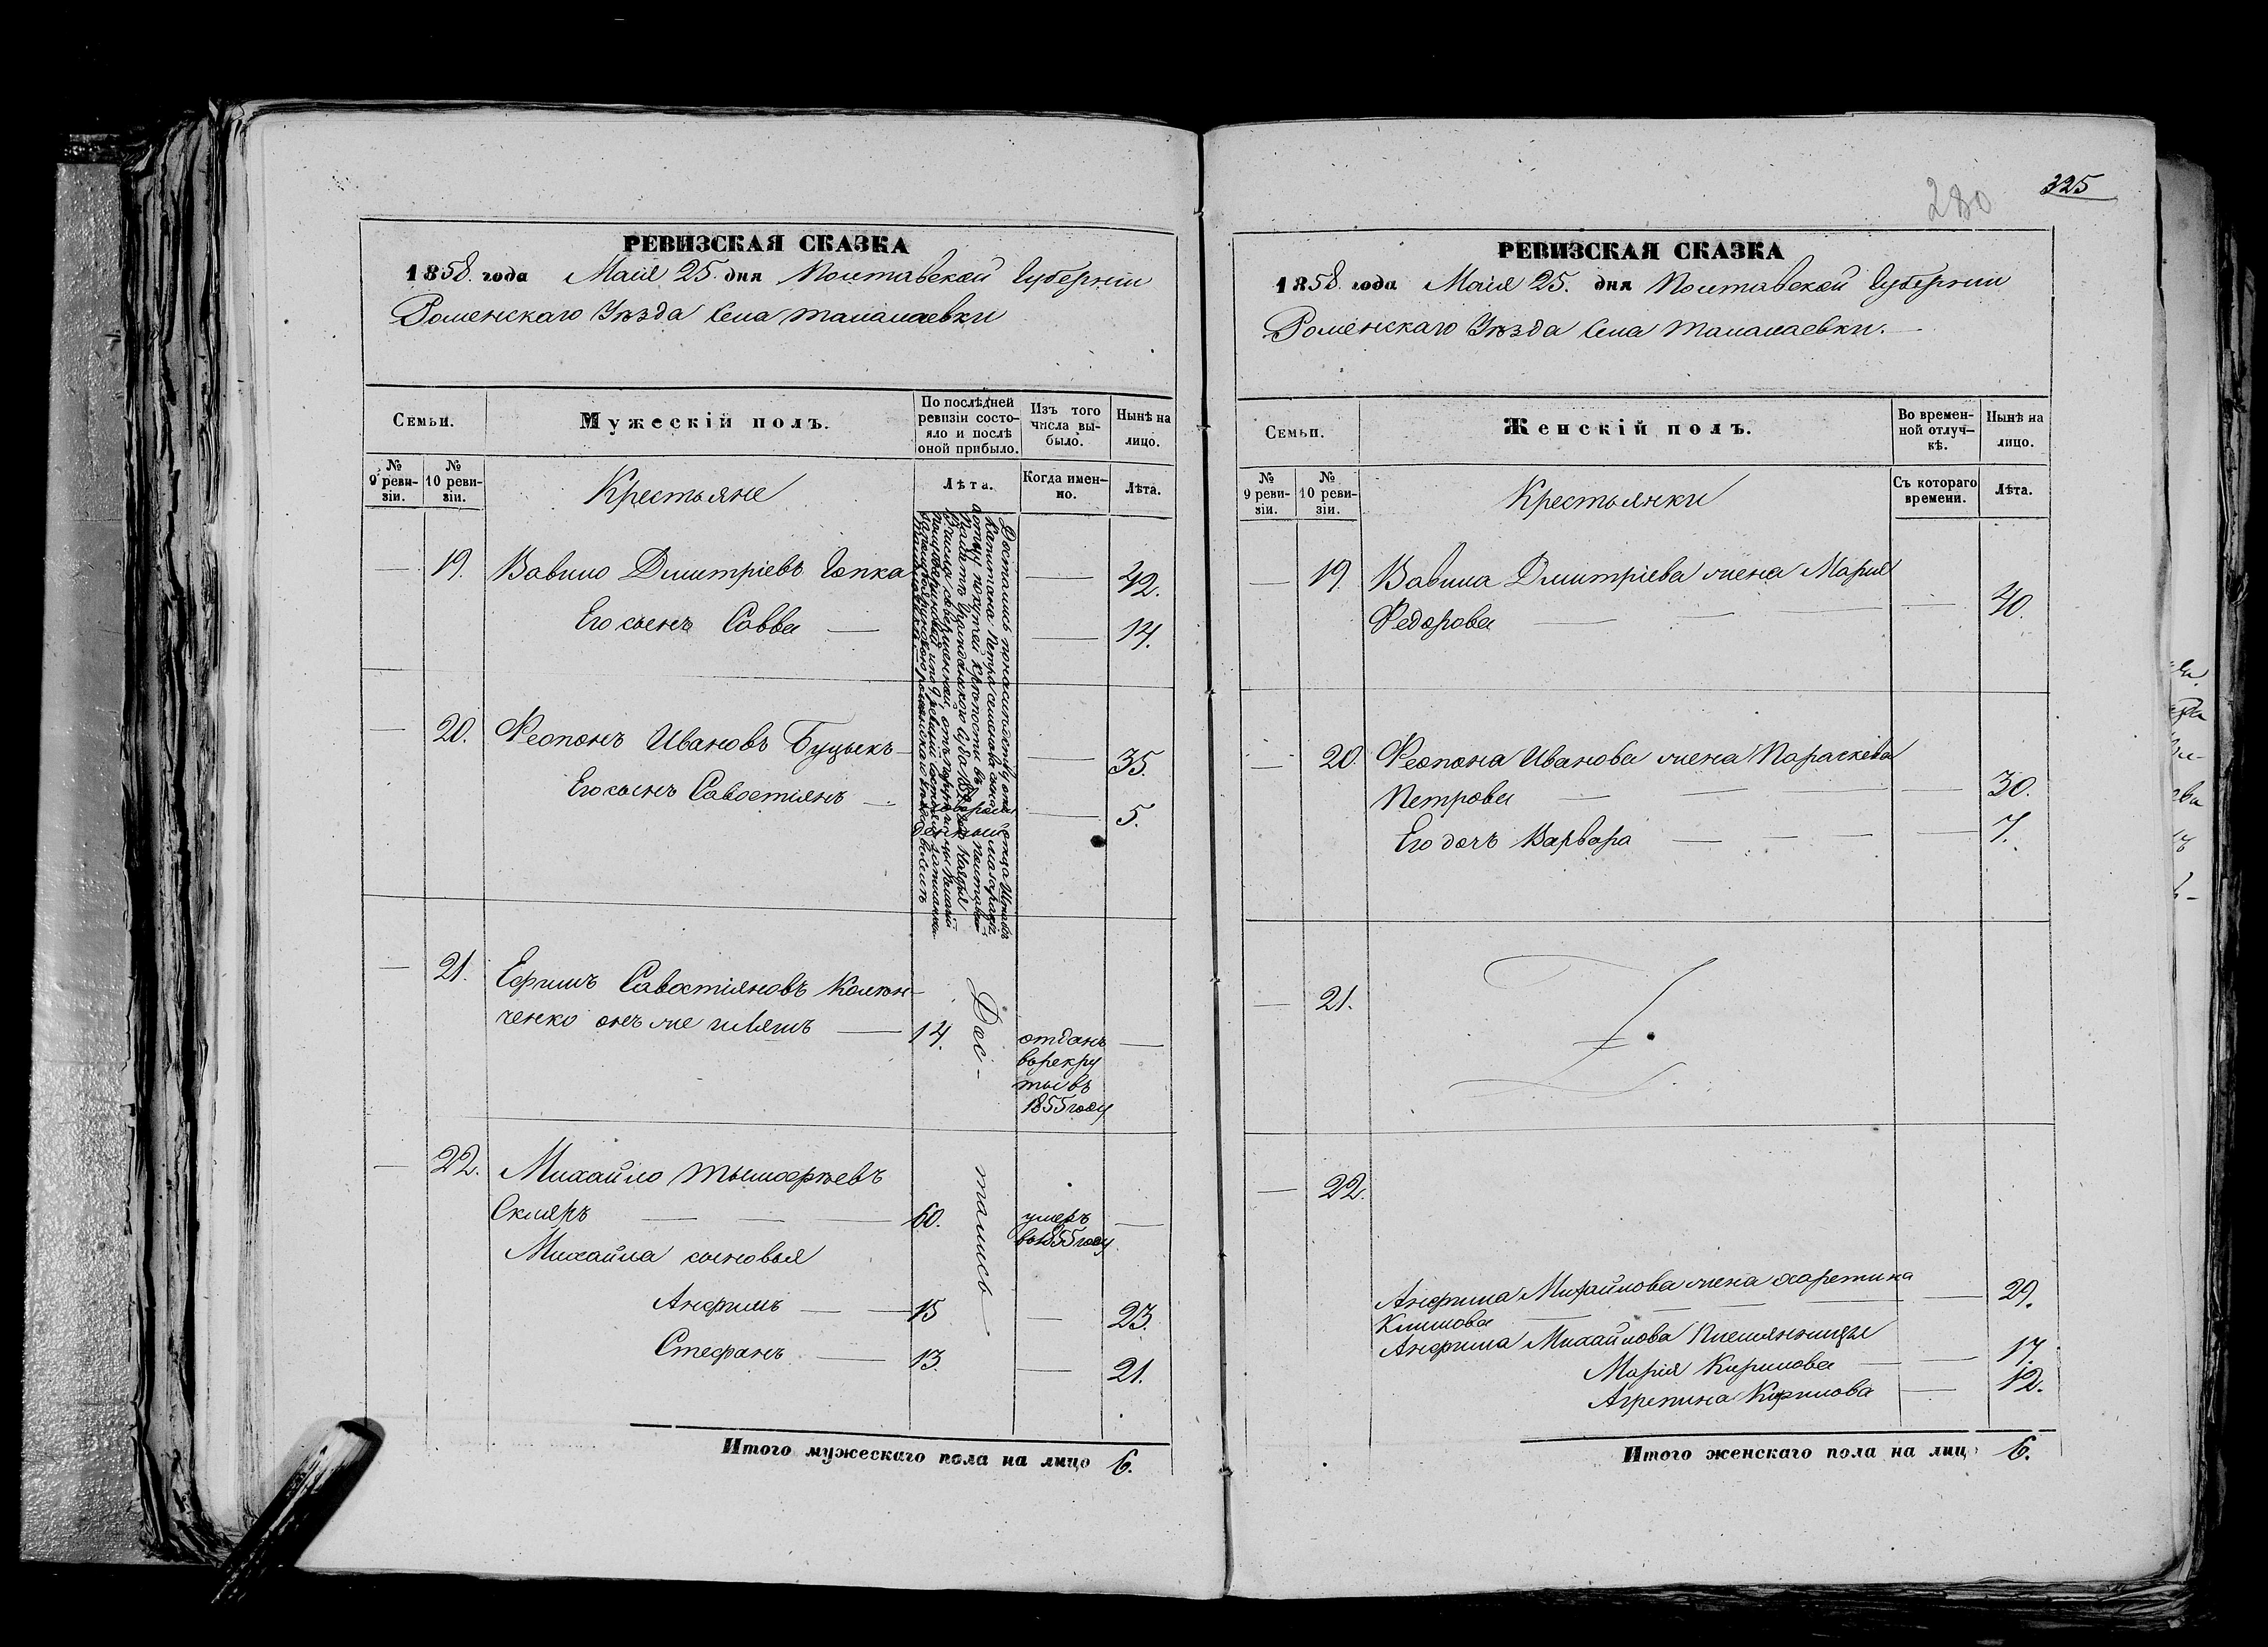 РЕВИЗСКАЯ СКАЗКА
1858. года Маія 25. дня Полтавской Губерніи
Роменскаго Уѣзда Села Талалаевки
Семьи.
Мужескій полъ.
По послѣдней ревизіи состояло и послѣ оной прибыло.
Изъ того числа выбыло.
Нынѣ на лицо.
№ 9 ревизіи.
№ 10 ревизіи.
Крестьяне
Лѣта.
Когда именно.
Лѣта.
— 19. Вавило Дмитріевъ Гопка — 42.
Его сынъ Савва — — 14.
— 20. Феопонъ Ивановъ Буцыкъ — — 35.
Его сынъ Савостіянъ — — 5.
— 21. Ефимъ Савостіяновъ Колюн-
ченко онъ же Шляшъ — 14. отданъ —
въ рекру
ты въ
1855 году
— 22. Михайло Тымофѣевъ
Скляръ — — — 60. умеръ —
въ 1855 году
Михайла сыновья
Анфимъ — — 15 — 23.
Стефанъ — 13. — 21.
Дос-
тались
Итого мужескаго пола на лицо 6.
280
325
РЕВИЗСКАЯ СКАЗКА
1858. года Маія 25. дня Полтавской Губерніи
Роменскаго Уѣзда Села Талалаевки.
Семьи.
Женскій полъ.
Во временной отлучкѣ.
Нынѣ на лицо.
№ 9 ревизіи.
№ 10 ревизіи.
Крестьянки
Съ котораго времени.
Лѣта.
— 19. Вавила Дмитріева жена Марія
Федорова — — — — 40.
— 20. Феопона Иванова жена Параскева
Петрова — — — — 30.
Его дочь Варвара — — — — 7.
— 21.
— 22.
Анфима Михайлова жена Харетина
Климова — — — — 29.
Анфима Михайлова Племянницы
Марія Кирилова — — 17.
Агрепина Кирилова — 12.
Итого женскаго пола на лицо 6.